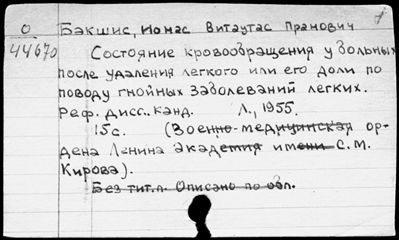 О Бакшис, Ионас Витаутас Пранович 1
44670 Состояние кровообращения у больных
после удаления легкого или его доли по
поводу гнойных заболеваний легких.
Реф. дисс. канд. Л., 1955.
15 с. (Военно-медицинская ор-
дена Ленина академия имени С.М.
Кирова).
Без тит.л. Описано по обл.